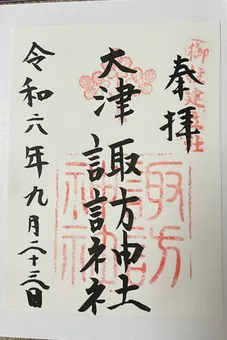 奉拝
大津
諏方神社
諏訪神社
令和六年九月二十三日